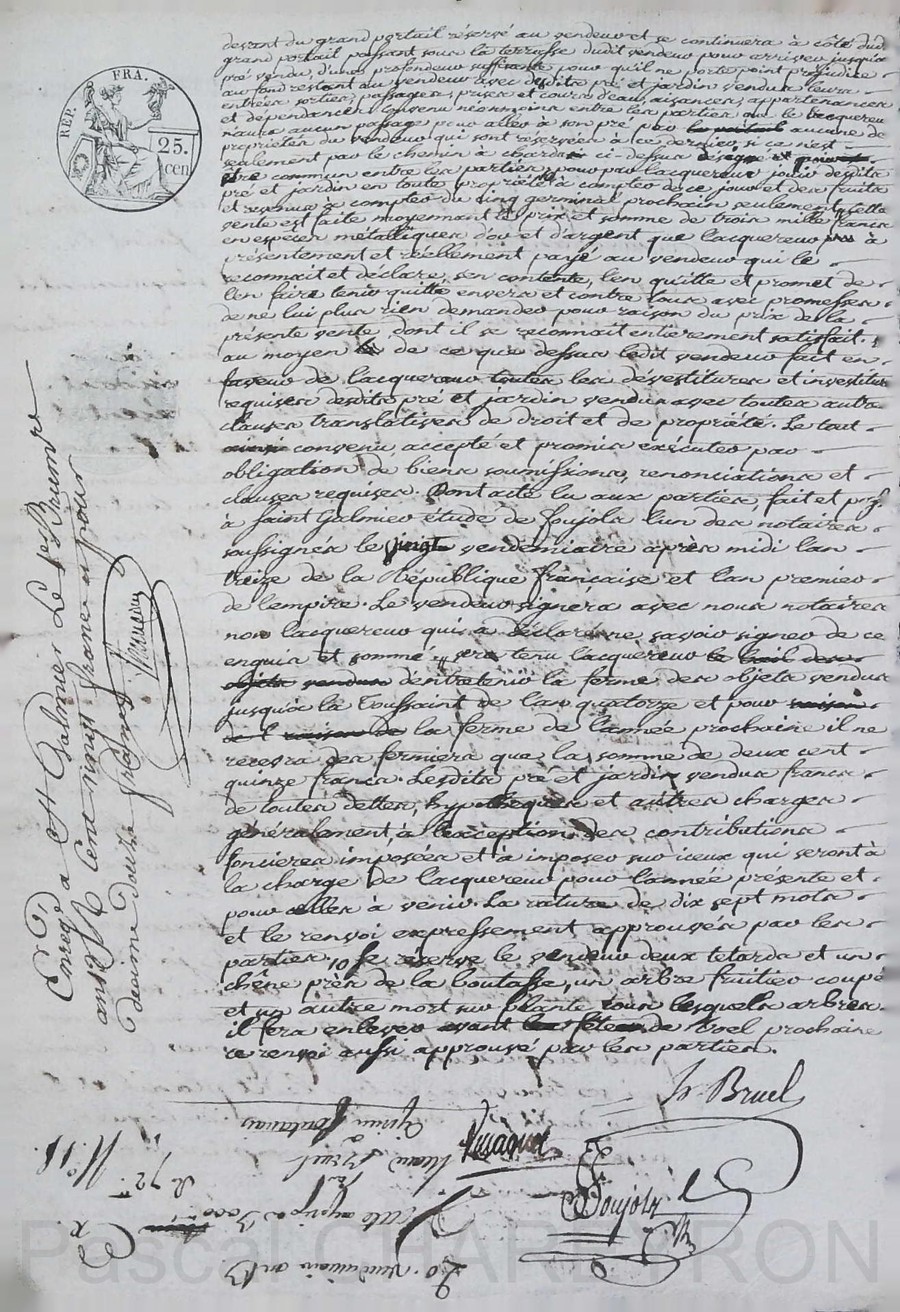 REP. FRA.
25.
cen
devant du grand portail réservé au vendeur et se continuera à côté dud.
grand portail passant sous la terrasse dudit vendeur pour arriver jusqu'au
pré vendu d'une profondeur suffisante pour qu'il ne porte point préjudice
au fond restant au vendeur avec desdits pré et jardin vendus leurs
entrées sorties, passages, prises et cours d'eau, aisances, appartenances
et dépendances convenu néonmoins entre les parties que le acquereur
n'aura aucun passage pour aller à son pré par aucune de
propriétés du vendeur qui sont réservées à ce dernier, si ce n'est
seulement par le chemin à chards ci-dessus
être commun entre les parties, pour par l'acquereur jouir desdits
pré et jardin en toute propriété à compter de ce jour et des fruits
et revenus à compter du cinq germinal prochain seulement, cette
vente est faite moyennant le prix et somme de trois mille francs
en espèces métalliques d'or et d'argent que l'acquereur a
présentement et réellement payé au vendeur qui le
reconnait et déclare, s'en contente, l'en quitte et promet de
l'en faire tenir quitte envers et contre tous avec promesses
de ne lui plus rien demander pour raison du prix de la
présente vente dont il se reconnait entierement satisfait.,
au moyen de ce que dessus ledit vendeur fait en
faveur de l'acquereur toutes les dévestitures et investitures
requises desdits pré et jardin vendus avec toutes autres
clauses translatives de droit et de propriété. Le tout
ainsi convenu, accepté et promis exécuter par
obligation de biens soumissions, renonciations et
clauses requises. Dont acte lu aux parties, fait et passé
à Saint Galmier étude de Soujols l'un des notaires
soussignés le vingt vendemiaire après midi l'an
treize de la République française et l'an premier
de l'empire. Le vendeur signera avec nous notaires
non l'acquereur qui a déclaré ne savoir signer de ce
enquis et sommé sera tenu l'acquereur le bail des
objets vendus d'entretenir la ferme des objets vendus
jusqu'à la Toussaint de l'an quatorze et pour raison
de la ferme de l'année prochaine il ne
recevra des fermiers que la somme de deux cent
quinze francs. Lesdits pré et jardin vendus francs
de toutes dettes, hypothèques et autres charges
généralement, à l'exception des contributions
foncieres imposées et à imposer sur iceux qui seront à
la charge de l'acquereur pour l'année présente et
pour celles à venir. La rature de dix sept mots
et le renvoi expressement approuvés par les
parties. se réserve le vendeur deux tetards et un
chêne près de la boutasse, un arbre fruitier coupé
et un autre mort sur plante tous lesquels arbres
il fera enlever avant les fetes de Noel prochaine
ce renvoi aussi approuvé par les parties.
Enregé à St Galmier Le Brum
an 13 Cent vingt francs pour
decime douze francs
h. Bruel
Soujols
N.° 18.
20 vendemiaire an 13